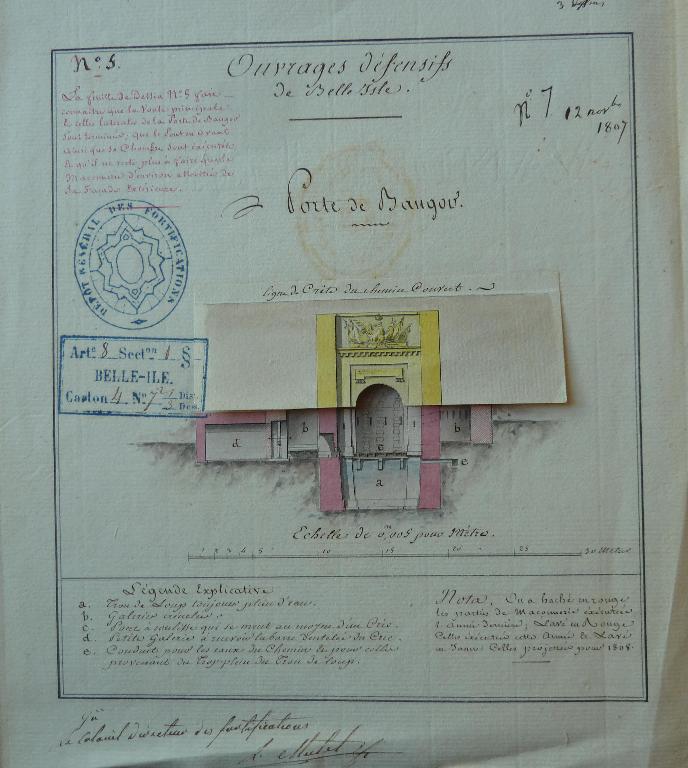 N.º 5.
Ouvrages défensifs
de Belle Isle.
La feuille de Dessin Nº 5 fait
connaitre que la Voute principale
& celles laterales de la Porte de Bangor
sont terminées; que le Pont en avant
ainsi que sa Chambre sont exécutés
& qu'il ne reste plus à faire que la
Maçonnerie d'environ
la Façade Extérieure.
Nº 7 12 novbre
1807
Porte de Bangor.
DÉPÔT GÉNÉRAL DES FORTIFICATIONS
ligne de Crête du chemin Couvert.
Artº 8 Sectºn 1 §
BELLE-ILE.
Carton 4. Nº 7
b
d
c
b
e
a
Echelle de 0,m005 pour Mètre.
1 2 3 4 5 10 15 20 25 30 Mètres
Légende Explicative
a. Trou de Loup toujours plein d'eau.
b. Galeries crénelées.
c. Pont à coulisse qui se meut au moyen d'un Cric.
d. Petite Galerie à recevoir la barre Dentelée du Cric.
e. Conduits pour les eaux du Chemin & pour celles
provenant du Trop plein du Trou de loup.
Nota, On a haché en rouge
les parties de Maçonnerie exécutées
l'année dernière; Lavé en Rouge
Celles exécutées cette Année & Lavé
en Jaune Celles projettées pour 1808.
Le Colonel directeur des fortifications